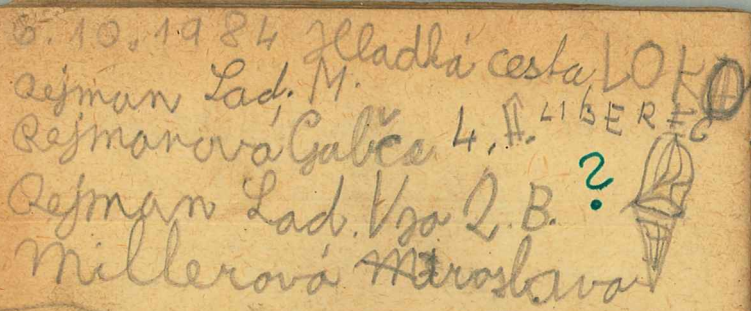 6.10.1984 Hladká cesta LOKO
Rejman Lad. M.
Rejmanová Gabča 4.A. LIBEREC
Rejman Lad. 2.B. ?
Millerová Miroslava